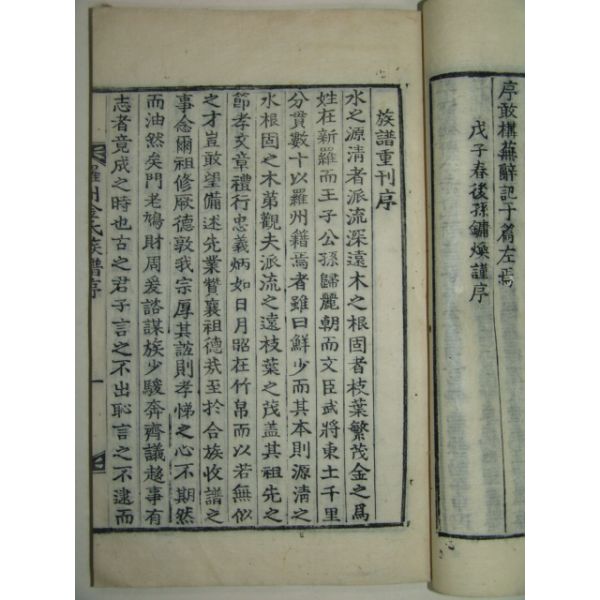 序敢構蕪辭記于篇左焉
戊子春後孫鏞煥謹序
族譜重刊序
水之源淸者派流深遠木之根固者枝葉繁茂金之爲
姓在新羅而王子公孫歸麗朝而文臣武將東土千里
分貫數十以羅州籍焉者雖曰鮮少而其本則源淸之
水根固之木第觀夫派流之遠枝葉之茂盖其祖先之
節孝文章禮行忠義炳如日月昭在竹帛而以若無似
之才豈敢望備述先業贊襄祖德哉至於合族收譜之
事念爾祖修厥德敦我宗厚其誼則孝悌之心不期然
而油然矣門老鳩財周爰諮謀族少駿奔齊議趍事有
志者竟成之時也古之君子言之不出恥言之不逮而
羅州金氏族譜序 一